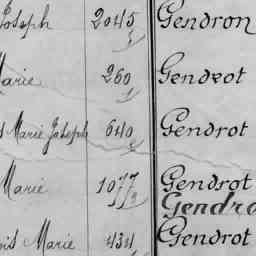 Joseph 2045 Gendron
1
Marie 260 Gendrot
1
s Marie Joseph 640 Gendrot
2
Marie 1077 Gendrot
1/2 Gendro
is Marie 434 Gendrot